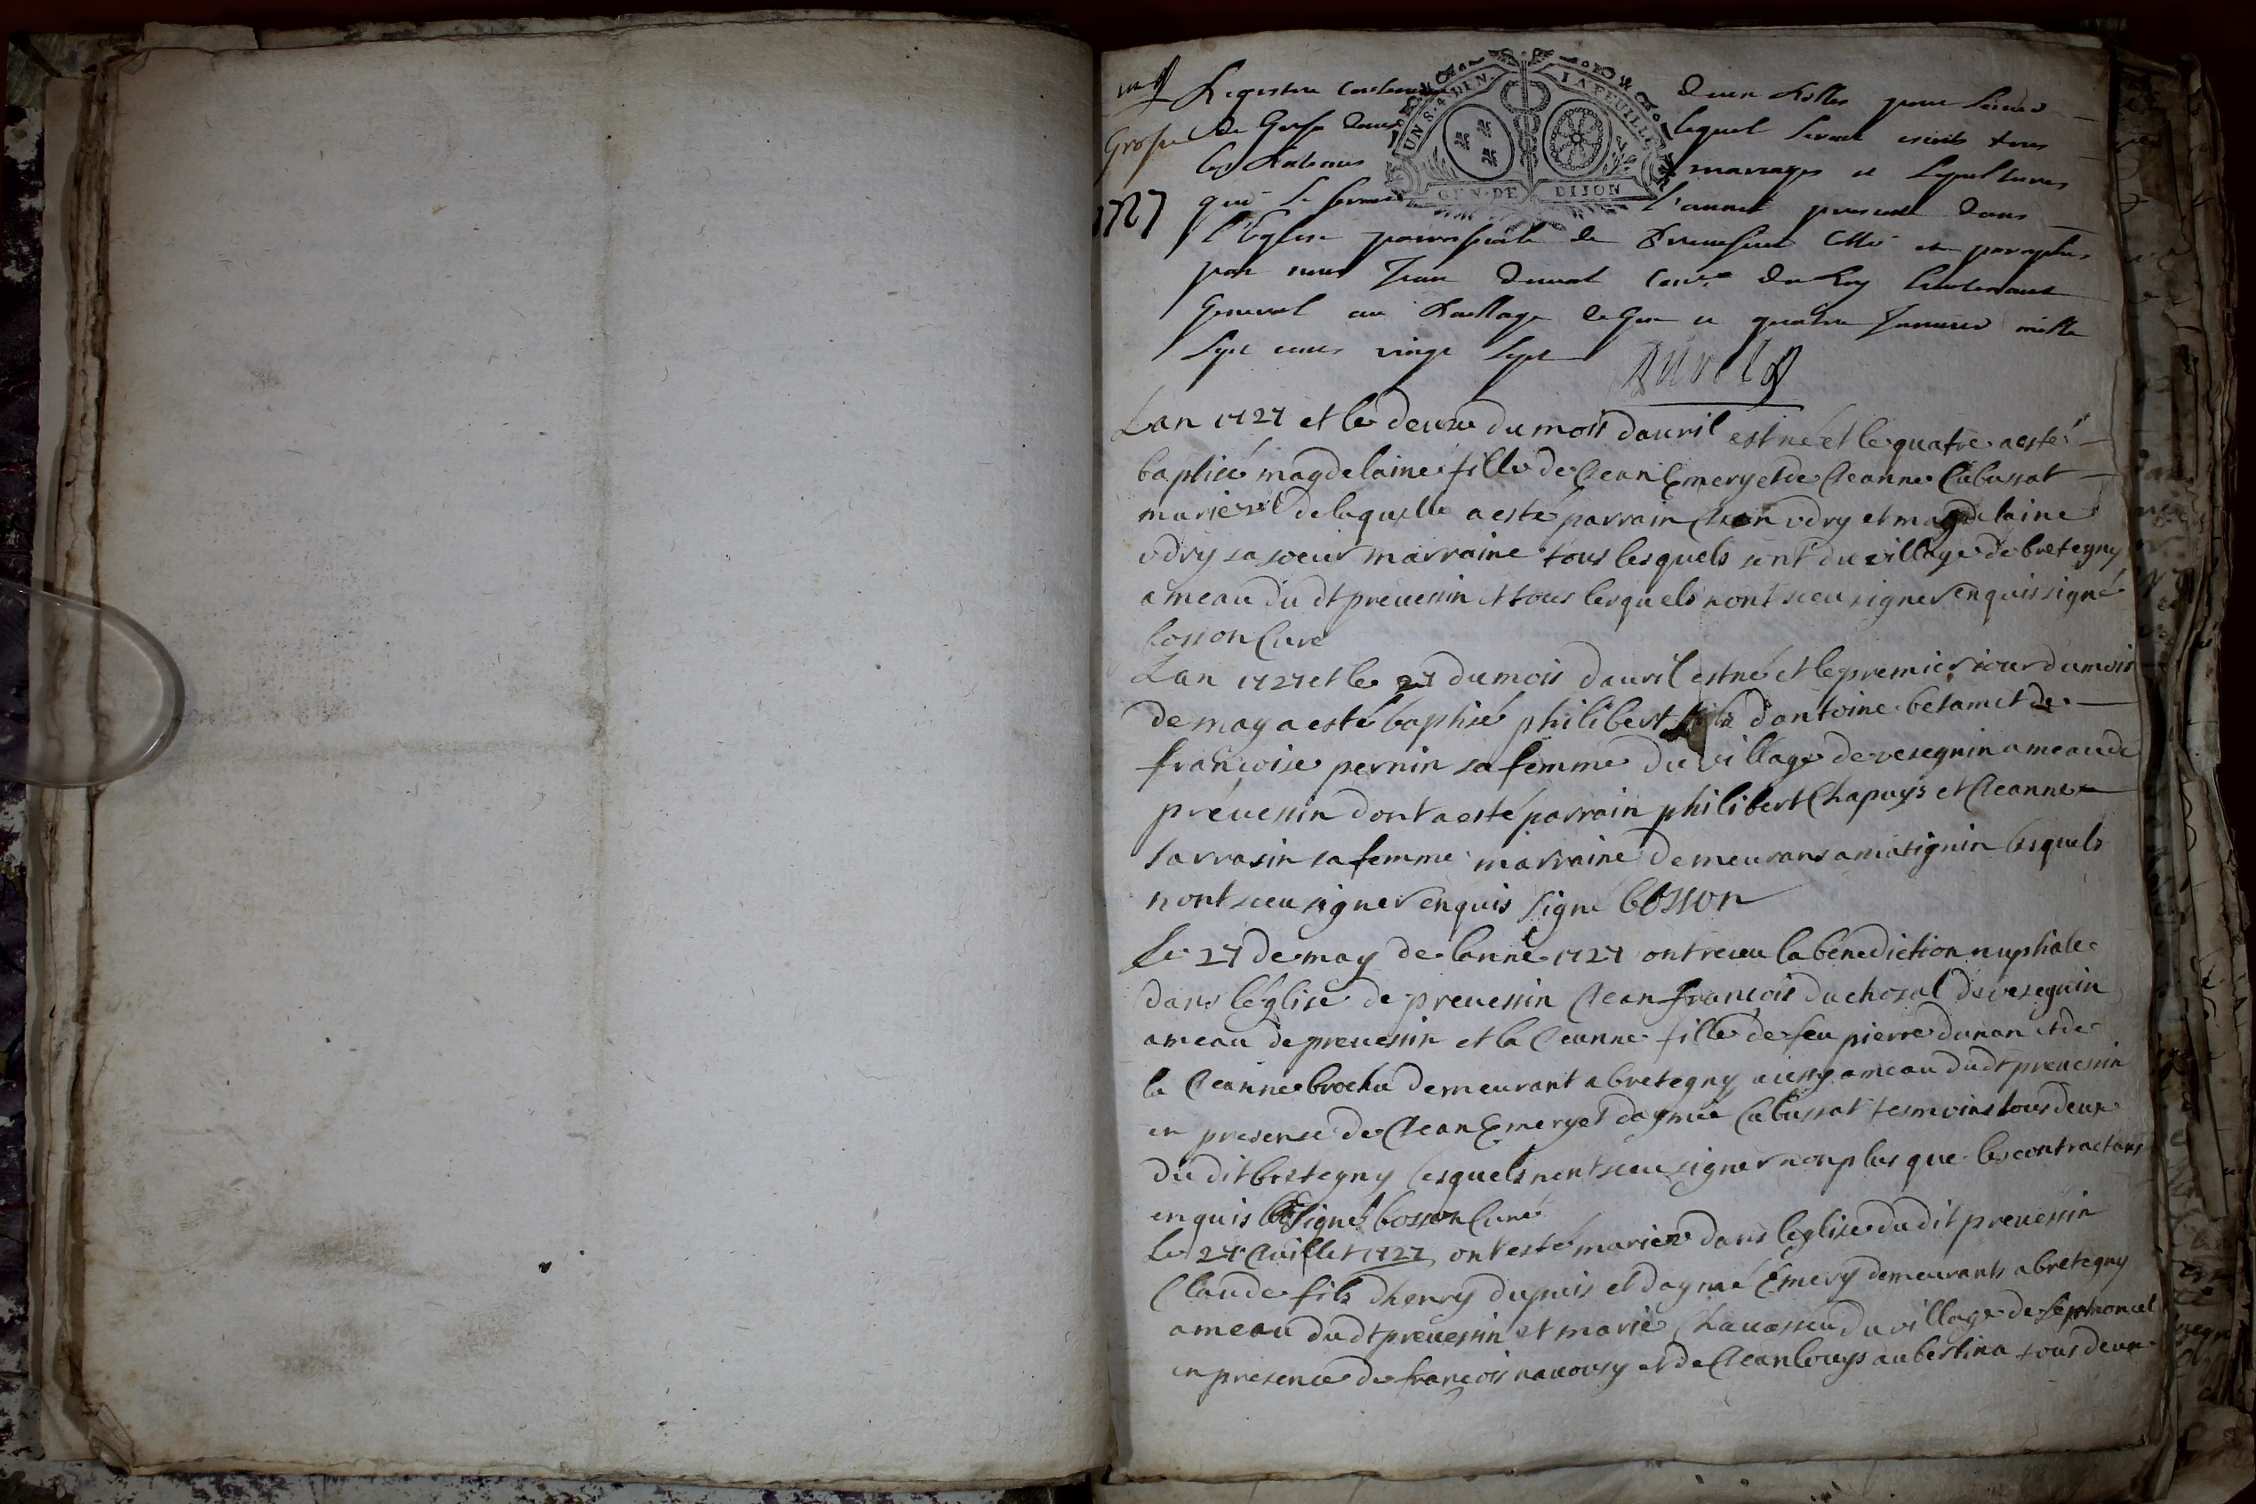 Registre contenant deux rolles pour servir
Grosse de Grosse dans lequel seront escrits tous
les Batemes mariages et sepultures
1727 qui se feront l'année presente dans
l'Eglise parroissiale de Prevessin Cotté et paraphé
par nous Jean Duval Con.er du Roy Lieutenant
General au Baillage de Gex ce quatre Janvier mille
sept cents vingt sept Duval
UN S. 4 DEN. LA FEUILLE
GEN. DE DIJON
Lan 1727 et le deux du mois dauril est né et le quatre a esté
baptisé magdelaine fille de Jean Emery et de Jeanne Cabussat
mariez de laquelle a esté parrain Jean vdry et magdelaine
vdry sa soeur marraine tous lesquels sont du village de bretegny
ameau du dt preuessin et tous lesquels nont sceu signer enquis signé
bosson Curé
Lan 1727 et le 27 du mois dauril est né et le premier iour du mois
de may a esté baptisé philibert fils dantoine betamt de
francoise pernin sa femme du village de vesegnin ameau de
préuessin dont a esté parrain philibert Chapuys et Jeanne
sarrasin sa femme marraine demeurans a matignin lesquels
nont sceu signer enquis signé bosson
Le 27 de may de lanné 1727 ont receu la benediction nuptiale
dans léglise de preuessin Jean françois duchosal de vesegnin
ameau de preuessin et la Jeanne fille de feu pierre dunan et de
la Jeanne brochu demeurant a bretegny aussy ameau dudt preuessin
en presense de Jean Emery et daymé Cabussat tesmoins tous deux
du dit bretegny lesquels nont sceu signer non plus que les contractans
enquis signé bosson Curé
Le 27 Juillet 1727 ont esté mariez dans leglise du dit preuessin
Claude fils dhenry dupuis et daymé Emery demeurants a bretegny
ameau dudt preuessin et marie Chauassu du village de septmoncel
en presence de francois nauoury et de Jean louys aubestina tous deux